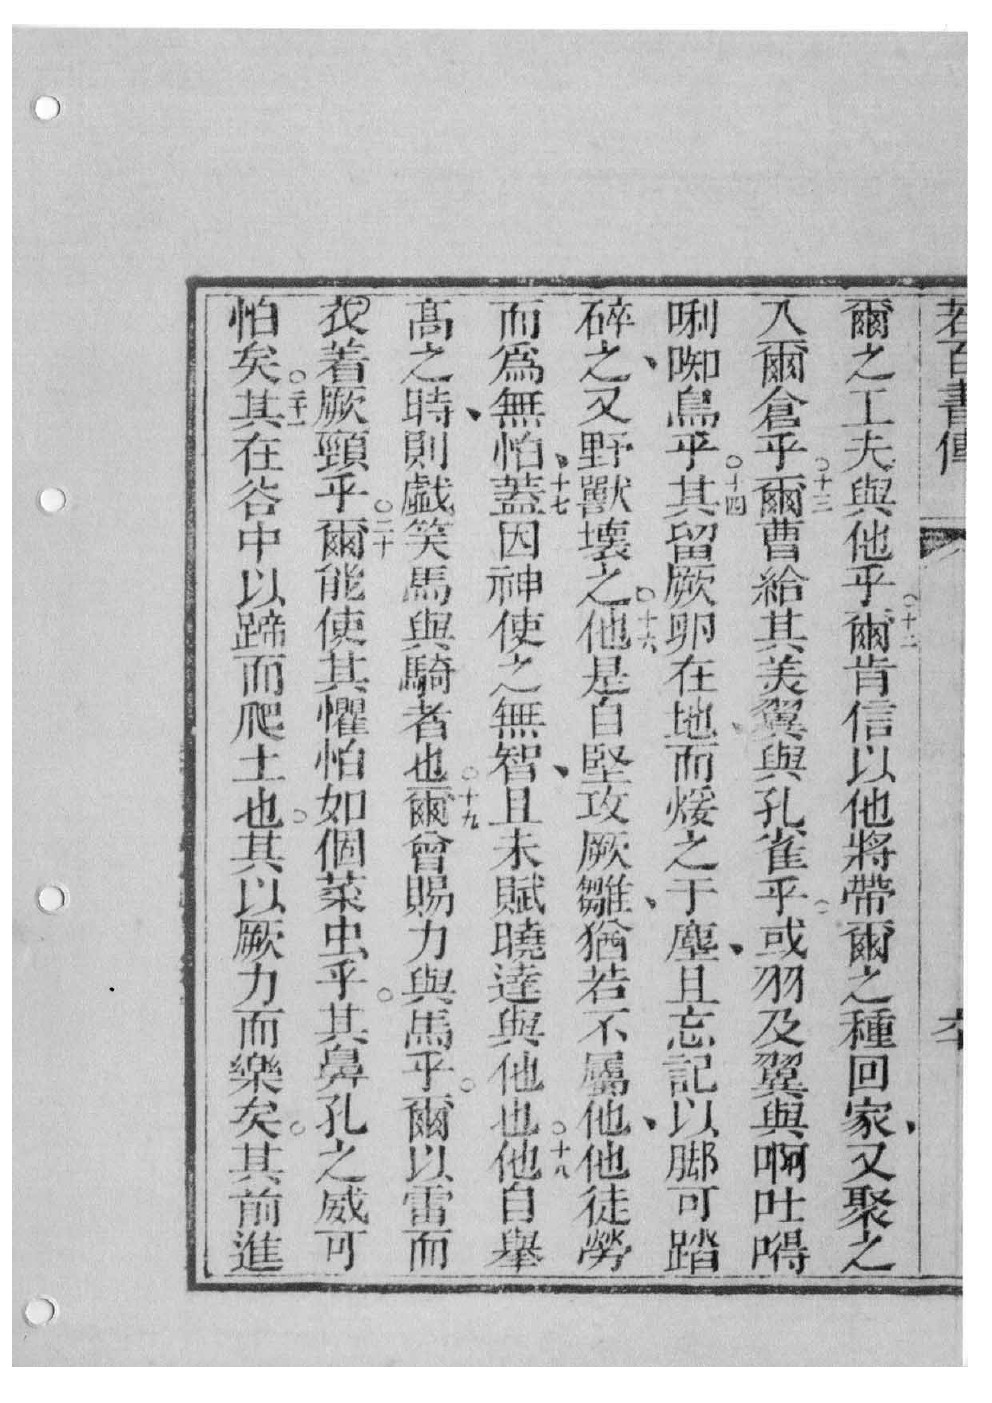 若百書傳
爾之工夫與他乎○十二爾肯信以他將帶爾之種回家、又聚之
入爾倉乎○十三爾曹給其美翼與孔雀乎○或羽及翼與啊吐嘚
唎啣鳥乎○十四其留厥卵在地、而煖之于塵、且忘記以脚可踏
碎之、又野獸壞之○十六他是自堅攻厥雛、猶若不屬他、他徒勞
而爲無怕、十七蓋因神使之無智、且未賦曉達與他也○十八他自舉
高之時、則戱笑馬與騎者也○十九爾曾賜力與馬乎○爾以雷而
衣着厥頸乎○二十爾能使其懼怕如個菜虫乎○其鼻孔之威可
怕矣○二十一其在谷中以蹄而爬土也○其以厥力而樂矣○其前進